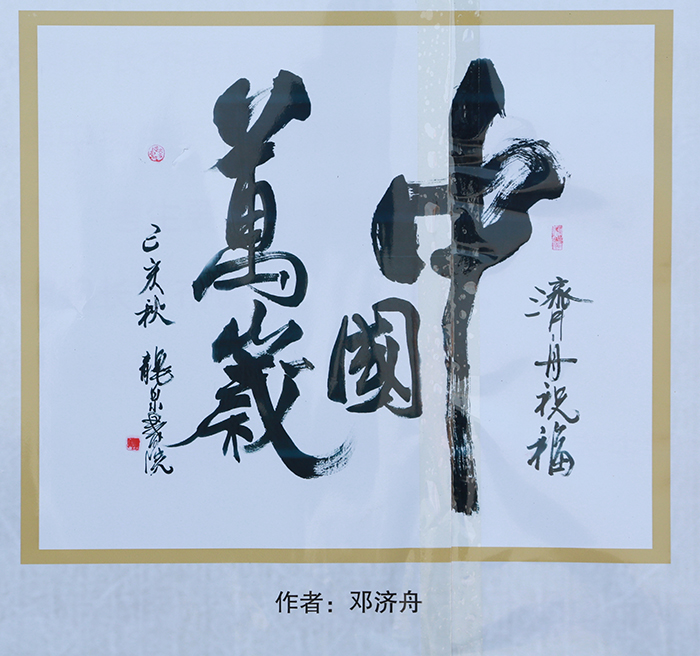 濟舟祝福
中國
萬歲
己亥秋 龍泉書院
作者：邓济舟